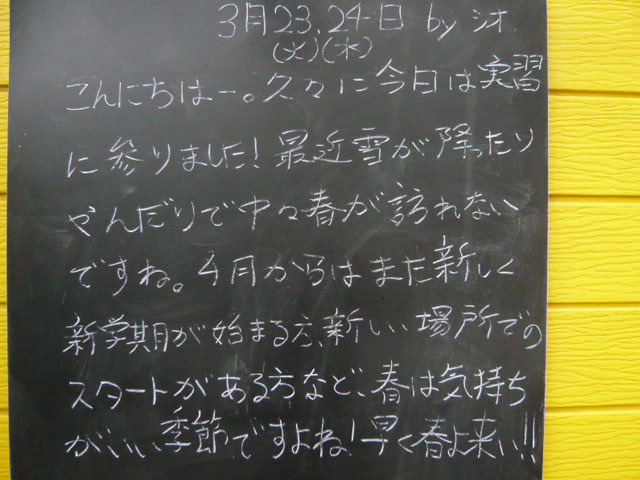 3月23,24日 by シオ
(火)(水)
こんにちはー。久々に今日は実習
に参りました!最近雪が降ったり
やんだりで中々春が訪れない
ですね。4月からはまた新しく
新学期が始まる方、新しい場所での
スタートがある方など、春は気持ち
がいい季節ですよね!早く春よ来い!!